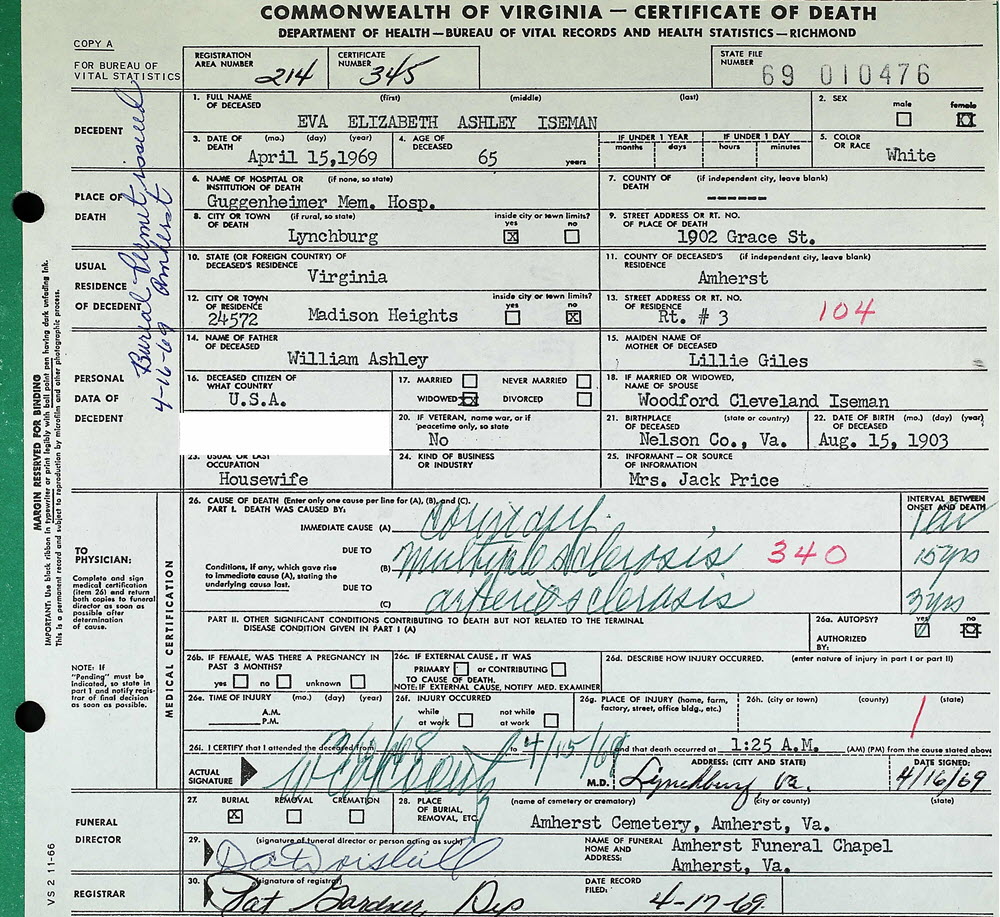 COMMONWEALTH OF VIRGINIA — CERTIFICATE OF DEATH
DEPARTMENT OF HEALTH—BUREAU OF VITAL RECORDS AND HEALTH STATISTICS—RICHMOND
COPY A
FOR BUREAU OF VITAL STATISTICS
REGISTRATION AREA NUMBER 214
CERTIFICATE NUMBER 345
STATE FILE NUMBER 69 010476
Burial Permit issued
4-16-69 Amherst
MARGIN RESERVED FOR BINDING
IMPORTANT: Use black ribbon in typewriter or print legibly with ball point pen having dark unfading ink.
This is a permanent record and subject to reproduction by microfilm and other photographic process.
DECEDENT
1. FULL NAME OF DECEASED (first) (middle) (last)
EVA ELIZABETH ASHLEY ISEMAN
2. SEX male female X
3. DATE OF DEATH (mo.) (day) (year)
April 15,1969
4. AGE OF DECEASED 65 years
IF UNDER 1 YEAR months days
IF UNDER 1 DAY hours minutes
5. COLOR OR RACE White
PLACE OF DEATH
6. NAME OF HOSPITAL OR INSTITUTION OF DEATH (if none, so state)
Guggenheimer Mem. Hosp.
7. COUNTY OF DEATH (if independent city, leave blank)
------
8. CITY OR TOWN OF DEATH (if rural, so state) inside city or town limits? yes X no
Lynchburg
9. STREET ADDRESS OR RT. NO. OF PLACE OF DEATH
1902 Grace St.
USUAL RESIDENCE OF DECEDENT
10. STATE (OR FOREIGN COUNTRY) OF DECEASED'S RESIDENCE
Virginia
11. COUNTY OF DECEASED'S RESIDENCE (if independent city, leave blank)
Amherst
12. CITY OR TOWN OF RESIDENCE inside city or town limits? yes no X
24572 Madison Heights
13. STREET ADDRESS OR RT. NO. OF RESIDENCE
Rt. # 3 104
PERSONAL DATA OF DECEDENT
14. NAME OF FATHER OF DECEASED
William Ashley
15. MAIDEN NAME OF MOTHER OF DECEASED
Lillie Giles
16. DECEASED CITIZEN OF WHAT COUNTRY
U.S.A.
17. MARRIED NEVER MARRIED
WIDOWED X DIVORCED
18. IF MARRIED OR WIDOWED, NAME OF SPOUSE
Woodford Cleveland Iseman
20. IF VETERAN, name war, or if peacetime only, so state
No
21. BIRTHPLACE OF DECEASED (state or country)
Nelson Co., Va.
22. DATE OF BIRTH OF DECEASED (mo.) (day) (year)
Aug. 15, 1903
23. USUAL OR LAST OCCUPATION
Housewife
24. KIND OF BUSINESS OR INDUSTRY
25. INFORMANT — OR SOURCE OF INFORMATION
Mrs. Jack Price
TO PHYSICIAN:
Complete and sign medical certification (item 26) and return both copies to funeral director as soon as possible after determination of cause.
NOTE: If "Pending" must be indicated, so state in part 1 and notify registrar of final decision as soon as possible.
MEDICAL CERTIFICATION
26. CAUSE OF DEATH (Enter only one cause per line for (A), (B), and (C).
PART I. DEATH WAS CAUSED BY:
INTERVAL BETWEEN ONSET AND DEATH
IMMEDIATE CAUSE (A) coronary
DUE TO (B) multiple sclerosis 340 15yrs
Conditions, if any, which gave rise to immediate cause (A), stating the underlying cause last.
DUE TO (C) arteriosclerosis 3yrs
PART II. OTHER SIGNIFICANT CONDITIONS CONTRIBUTING TO DEATH BUT NOT RELATED TO THE TERMINAL DISEASE CONDITION GIVEN IN PART I (A)
26a. AUTOPSY? yes no X
AUTHORIZED BY:
26b. IF FEMALE, WAS THERE A PREGNANCY IN PAST 3 MONTHS?
yes no unknown
26c. IF EXTERNAL CAUSE, IT WAS PRIMARY or CONTRIBUTING TO CAUSE OF DEATH.
NOTE: IF EXTERNAL CAUSE, NOTIFY MED. EXAMINER
26d. DESCRIBE HOW INJURY OCCURRED. (enter nature of injury in part I or part II)
26e. TIME OF INJURY (mo.) (day) (year)
A.M.
P.M.
26f. INJURY OCCURRED
while at work not while at work
26g. PLACE OF INJURY (home, farm, factory, street, office bldg., etc.)
26h. (city or town) (county) (state)
26i. I CERTIFY that I attended the deceased from to 4/15/69 and that death occurred at 1:25 A.M. (AM) (PM) from the cause stated above
ACTUAL SIGNATURE M.D.
ADDRESS: (CITY AND STATE)
Lynchburg, Va.
DATE SIGNED:
4/16/69
FUNERAL DIRECTOR
27. BURIAL X REMOVAL CREMATION
28. PLACE OF BURIAL, REMOVAL, ETC. (name of cemetery or crematory) (city or county) (state)
Amherst Cemetery, Amherst, Va.
29. (signature of funeral director or person acting as such)
NAME OF FUNERAL HOME AND ADDRESS:
Amherst Funeral Chapel
Amherst, Va.
REGISTRAR
30. (signature of registrar)
Pat Gardner, Dep
DATE RECORD FILED: 4-17-69
VS 2 11-66